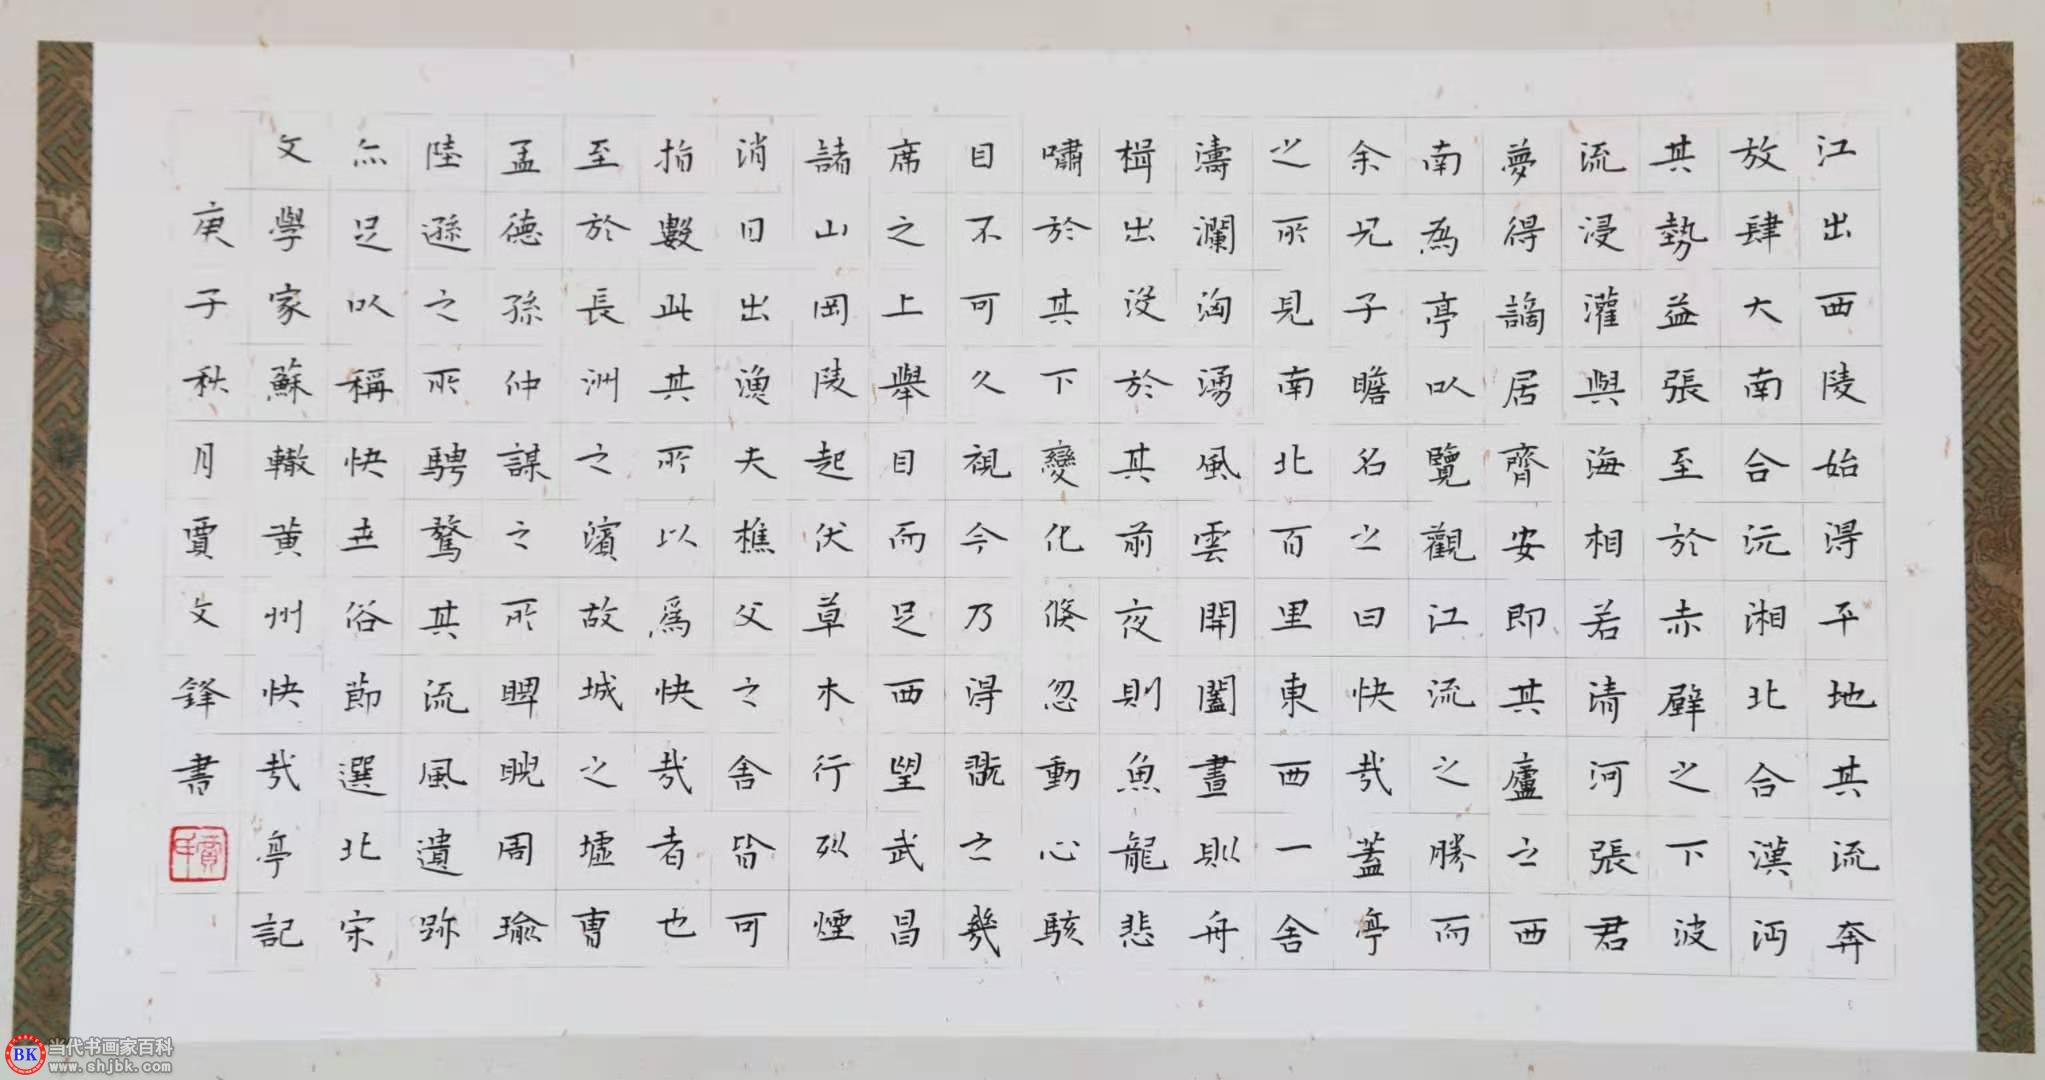 江出西陵始得平地其流奔
放肆大南合沅湘北合漢沔
其勢益張至於赤壁之下波
流浸灌與海相若清河張君
夢得謫居齊安即其廬之西
南為亭以覽觀江流之勝而
余兄子瞻名之曰快哉蓋亭
之所見南北百里東西一舍
濤瀾洶湧風雲開闔晝則舟
楫出沒於其前夜則魚龍悲
嘯於其下變化倏忽動心駭
目不可久視今乃得翫之幾
席之上舉目而足西望武昌
諸山岡陵起伏草木行列煙
消日出漁夫樵父之舍皆可
指數此其所以爲快哉者也
至於長洲之濱故城之墟曹
孟德孫仲謀之所睥睨周瑜
陸遜之所騁騖其流風遺跡
亦足以稱快世俗節選北宋
文學家蘇轍黃州快哉亭記
庚子秋月賈文鋒書
BK 当代书画家百科
www.shjbk.com